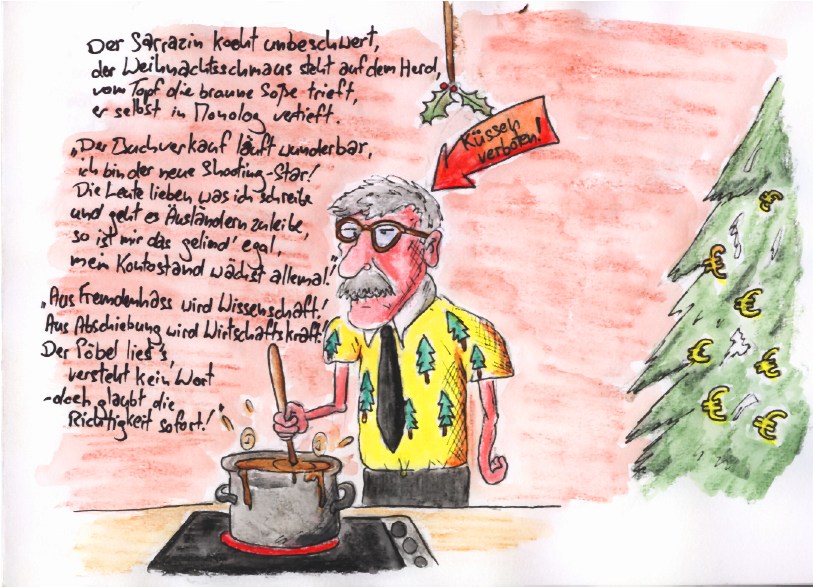 Der Sarrazin kocht unbeschwert,
der Weihnachtsschmaus steht auf dem Herd,
vom Topf die braune Soße trieft,
er selbst in Monolog vertieft.
„Der Buchverkauf läuft wunderbar,
ich bin der neue Shooting-Star!
Die Leute lieben was ich schreibe
und geht es Ausländern zuleibe,
so ist mir das gelind' egal,
mein Kontostand wächst allemal!"
„Aus Fremdenhass wird Wissenschaft!
Aus Abschiebung wird Wirtschaftskraft!
Der Pöbel liest's,
versteht kein Wort
-doch glaubt die
Richtigkeit sofort!"
Küssen
verboten!
€
€
€
€
€
€
€